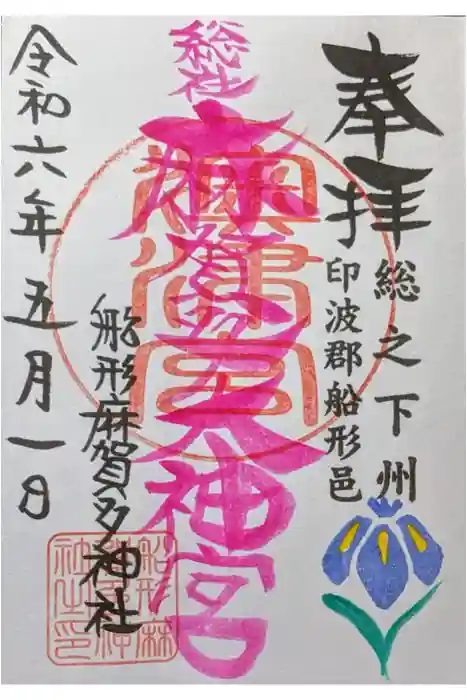 奉拝
総之下州
印波郡船形邑
総社
麻賀多大神宮
船形麻賀多神社
令和六年五月一日